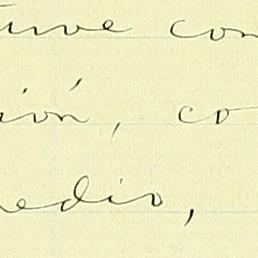 tuve con
ión, co
edio,